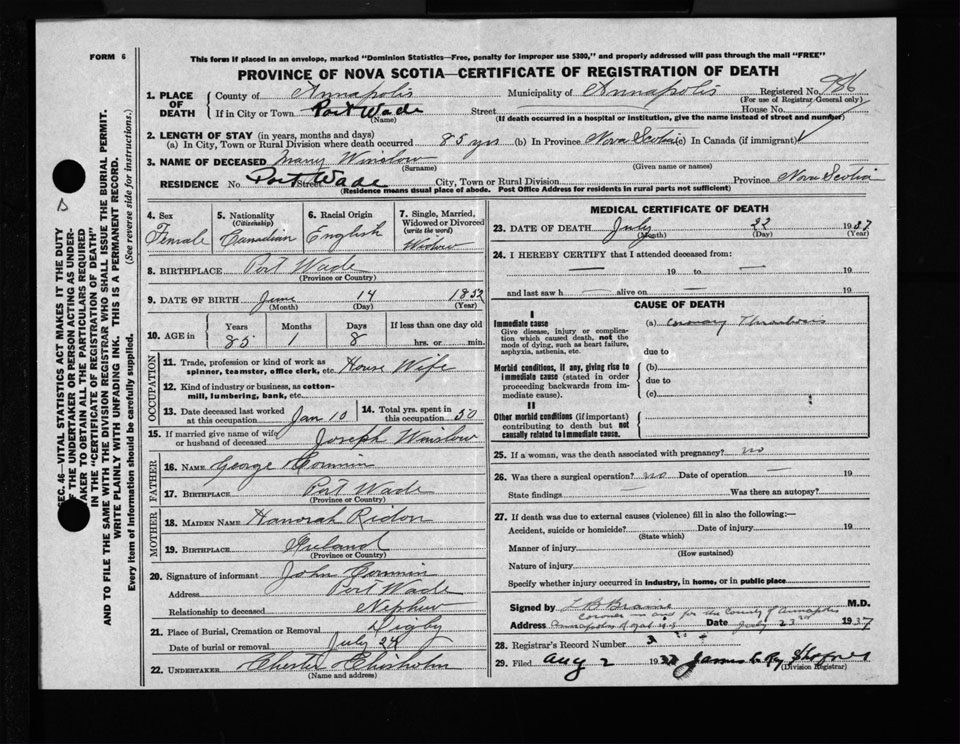 FORM 6
This form if placed in an envelope, marked "Dominion Statistics—Free, penalty for improper use $300," and properly addressed will pass through the mail "FREE"
PROVINCE OF NOVA SCOTIA—CERTIFICATE OF REGISTRATION OF DEATH
1. PLACE OF DEATH County of Annapolis Municipality of Annapolis Registered No. 986
(For use of Registrar General only)
If in City or Town Port Wade Street House No.
(Name) (If death occurred in a hospital or institution, give the name instead of street and number)
2. LENGTH OF STAY (in years, months and days)
(a) In City, Town or Rural Division where death occurred 85 yrs (b) In Province Nova Scotia (c) In Canada (if immigrant)
3. NAME OF DECEASED Mary Winslow
(Surname) (Given name or names)
RESIDENCE No. Port Wade Street City, Town or Rural Division Province Nova Scotia
(Residence means usual place of abode. Post Office Address for residents in rural parts not sufficient)
4. Sex Female
5. Nationality (Citizenship) Canadian
6. Racial Origin English
7. Single, Married, Widowed or Divorced (write the word) Widow
8. BIRTHPLACE Port Wade
(Province or Country)
9. DATE OF BIRTH June 14 1852
(Month) (Day) (Year)
10. AGE in Years 85 Months 1 Days 8 If less than one day old hrs. or min.
OCCUPATION
11. Trade, profession or kind of work as spinner, teamster, office clerk, etc. House Wife
12. Kind of industry or business, as cotton-mill, lumbering, bank, etc.
13. Date deceased last worked at this occupation Jan 10
14. Total yrs. spent in this occupation 50
15. If married give name of wife or husband of deceased Joseph Winslow
FATHER
16. NAME George
17. BIRTHPLACE Port Wade
(Province or Country)
MOTHER
18. MAIDEN NAME Hanorah
19. BIRTHPLACE Ireland
(Province or Country)
20. Signature of informant John
Address Port Wade
Relationship to deceased Nephew
21. Place of Burial, Cremation or Removal Digby
Date of burial or removal July 24
22. UNDERTAKER Chester Chisholm
(Name and address)
MEDICAL CERTIFICATE OF DEATH
23. DATE OF DEATH July 22 1937
(Month) (Day) (Year)
24. I HEREBY CERTIFY that I attended deceased from:
— 19 to — 19
and last saw h — alive on — 19
CAUSE OF DEATH
I
Immediate cause
Give disease, injury or complication which caused death, not the mode of dying, such as heart failure, asphyxia, asthenia, etc.
(a) Coronary Thrombosis
due to
Morbid conditions, if any, giving rise to immediate cause (stated in order proceeding backwards from immediate cause).
(b)
due to
(c)
II
Other morbid conditions (if important) contributing to death but not causally related to immediate cause.
25. If a woman, was the death associated with pregnancy? no
26. Was there a surgical operation? no Date of operation — 19
State findings — Was there an autopsy?
27. If death was due to external causes (violence) fill in also the following:—
Accident, suicide or homicide? Date of injury 19
(State which)
Manner of injury
(How sustained)
Nature of injury
Specify whether injury occurred in industry, in home, or in public place
Signed by L B Braine M.D.
Coroner in and for the County of Annapolis
Address Annapolis Royal N.S. Date July 23rd 1937
28. Registrar's Record Number 3
29. Filed Aug 2 1937 James
(Division Registrar)
SEC. 46—VITAL STATISTICS ACT MAKES IT THE DUTY
OF THE UNDERTAKER OR PERSON ACTING AS UNDER-
TAKER TO OBTAIN ALL THE PARTICULARS REQUIRED
IN THE "CERTIFICATE OF REGISTRATION OF DEATH"
AND TO FILE THE SAME WITH THE DIVISION REGISTRAR WHO SHALL ISSUE THE BURIAL PERMIT.
WRITE PLAINLY WITH UNFADING INK. THIS IS A PERMANENT RECORD.
Every item of information should be carefully supplied. (See reverse side for instructions.)